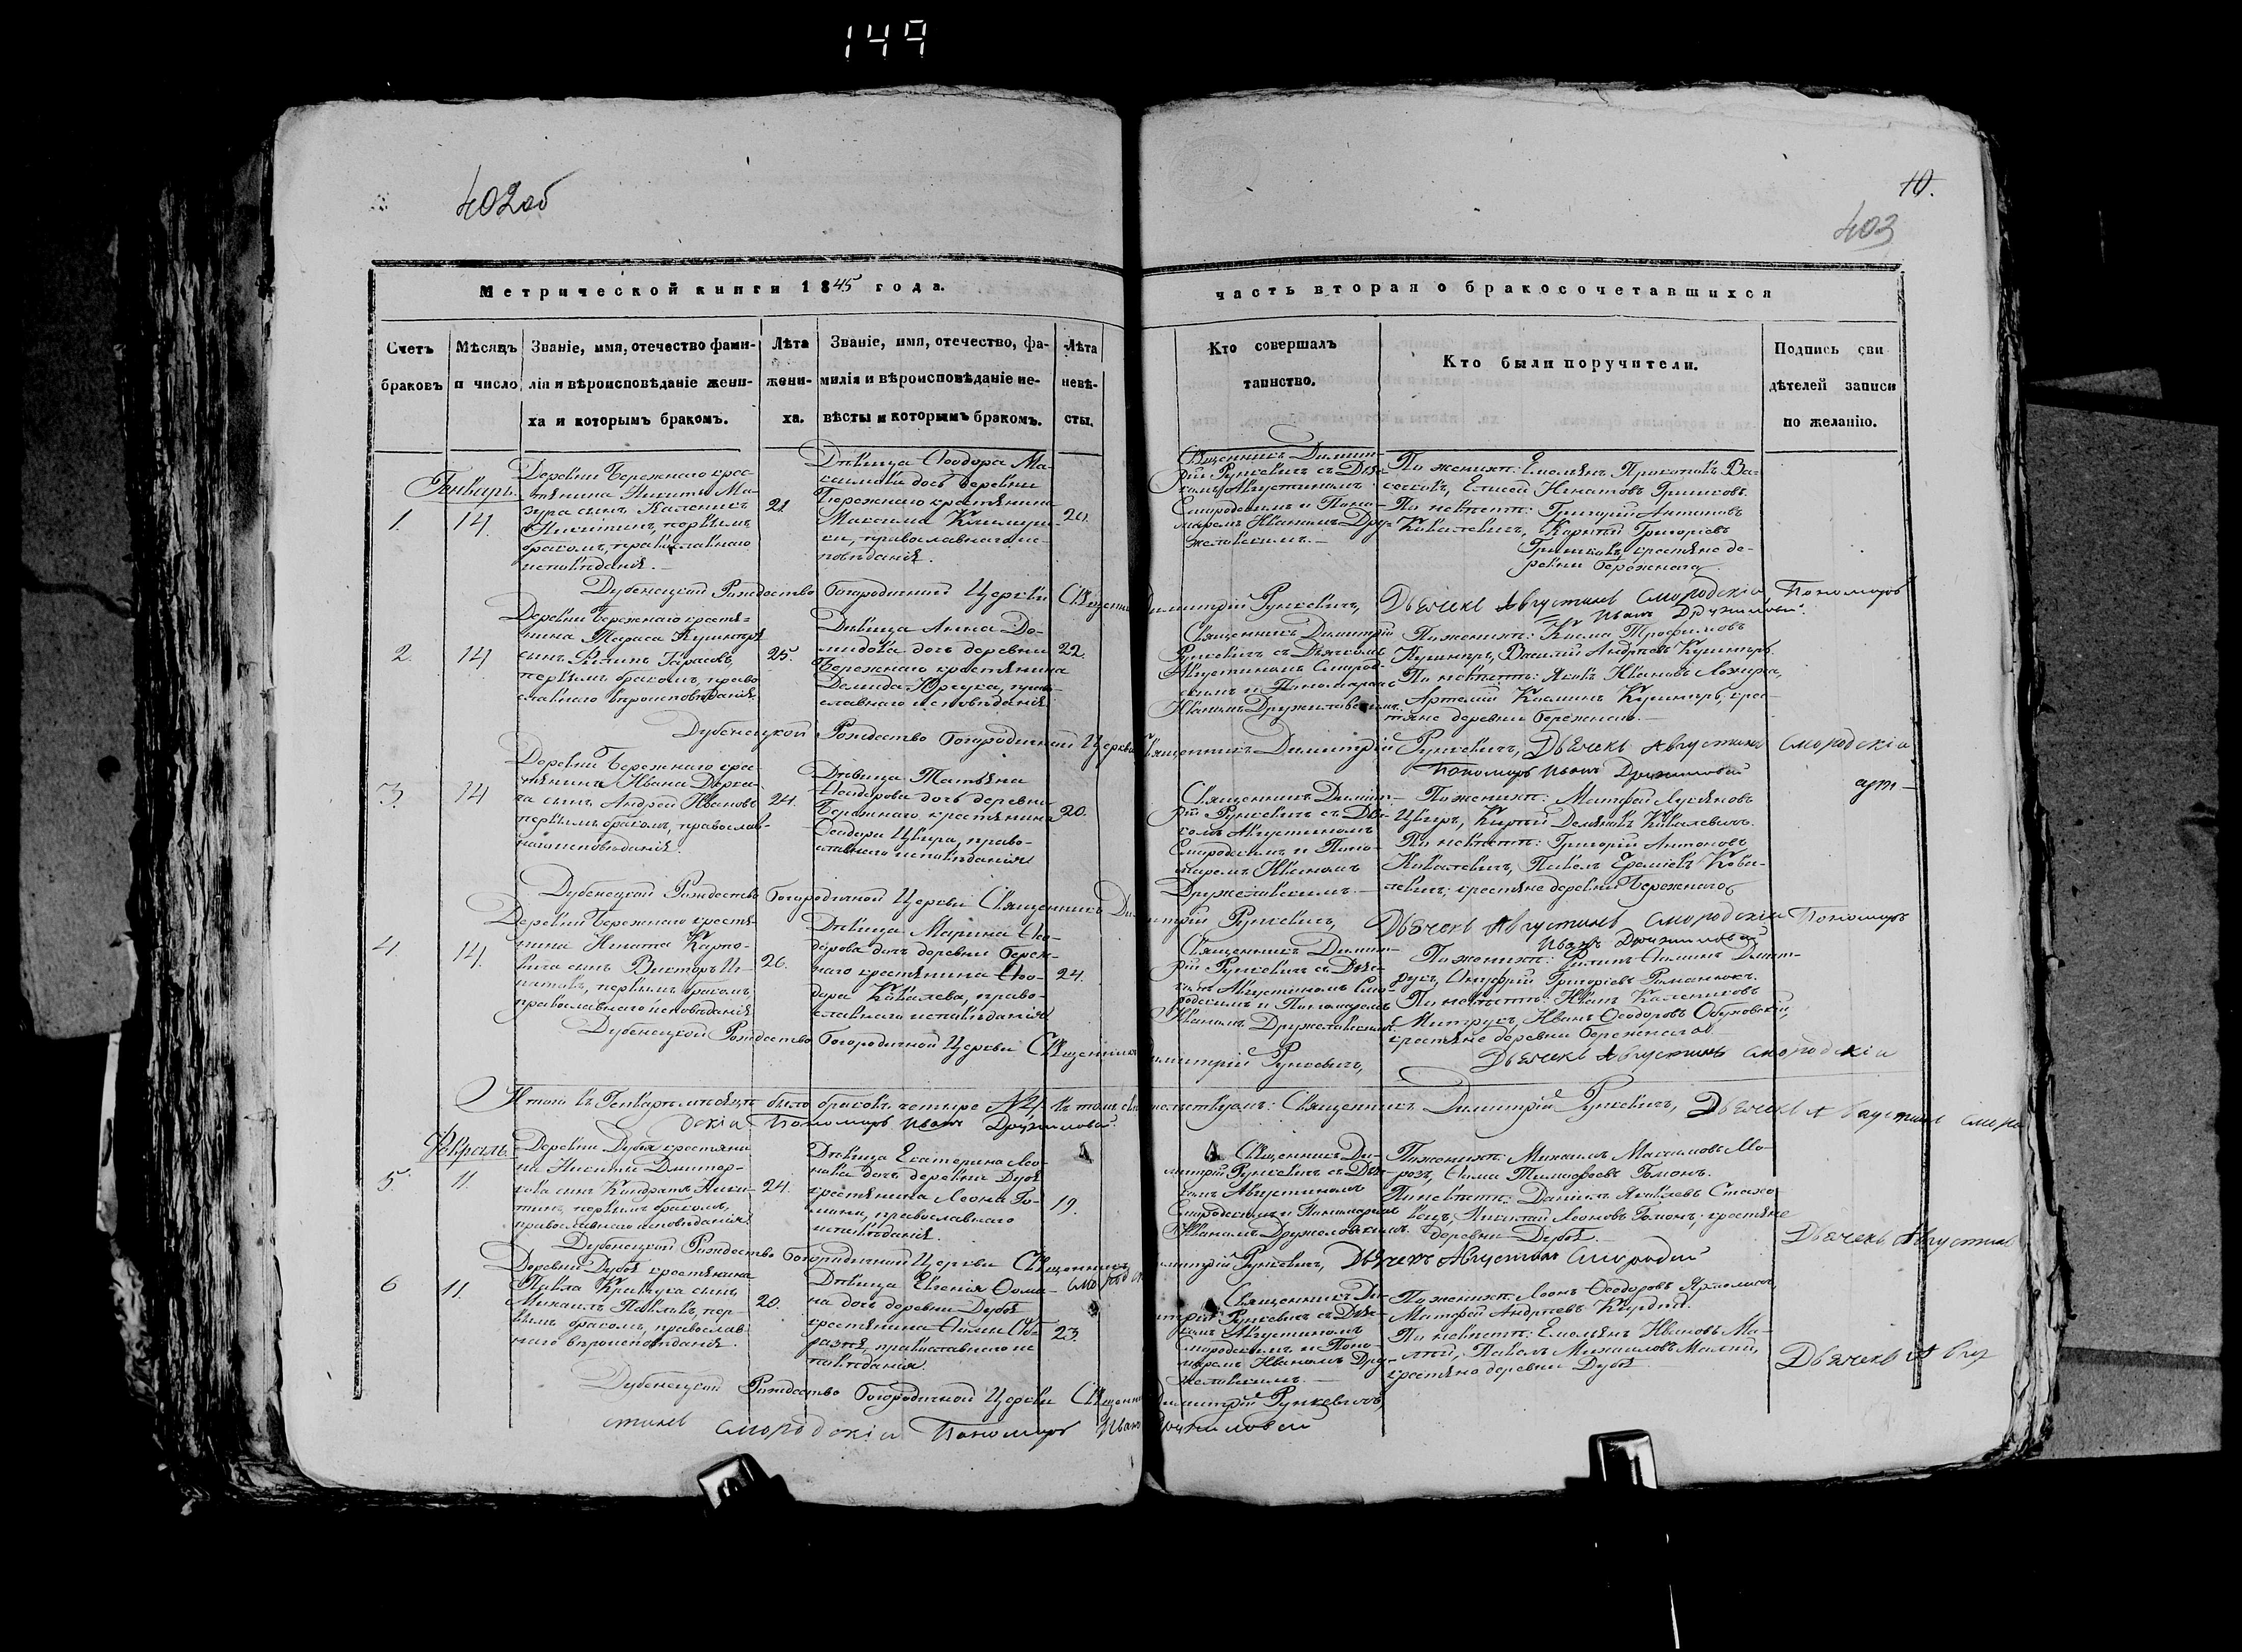 149
402об
10.
403
Метрической книги 1845 года.
часть вторая о бракосочетавшихся
Счетъ браковъ
Мѣсяцъ и число
Званіе, имя, отечество фами-
лія и вѣроисповѣданіе жени-
ха и которымъ бракомъ.
Лѣта
жени-
ха.
Званіе, имя, отечество, фа-
милія и вѣроисповѣданіе не-
вѣсты и которымъ бракомъ.
Лѣта
невѣ-
сты.
Кто совершалъ
таинство.
Кто были поручители.
Подпись сви
дѣтелей записи
по желанію.
Генварь
1.
14.
Деревни Бережнаго крес-
тянина Никиты Ма-
зура сынъ Каленикъ
Никитинъ, первымъ
бракомъ, православнаго
исповѣданія.
21
Дѣвица Ѳеодора Ма-
ксимова дочь деревни
Бережнаго крестянина
Максима
православнаго ис-
повѣданія.
20.
Священникъ Димит-
рій Рункевичъ съ Дья-
комъ Августиномъ
Смородскимъ и Поно-
маремъ Иваномъ Дру-
жиловскимъ.
По женихѣ: Емельянъ Прокоповъ Ва-
Елисей Игнатовъ Гришковъ.
По невѣстѣ: Григорій Антоновъ
Ковалевичъ, Карпъ Григоріевъ
Гришковъ, крестяне де-
ревни Бережнаго
Дубенецкой Рождество Богородичной Церкви Священникъ Димитрій Рункевичъ, Дьячекъ Августинъ Смородскій Пономарь
Иванъ Дружиловскій.
2.
14
Деревни Бережнаго крестя-
нина Тараса Кушнѣра
сынъ Филипъ Тарасовъ,
первымъ бракомъ, право-
славнаго вѣроисповѣданія.
25.
Дѣвица Анна Де-
мидова дочь деревни
Бережнаго крестянина
Демида Юрчука, право-
славнаго исповѣданія.
22.
Священникъ Димитрій
Рункевичъ съ Дьячкомъ
Августиномъ Смород-
скимъ и Пономаремъ
Иваномъ Дружиловскимъ.
По женихѣ: Козма Трофимовъ
Кушнѣръ, Василій Андреевъ Кушнѣръ.
По невѣстѣ: Яковъ Ивановъ
Артемій Козминъ Кушнѣръ, крес-
тяне деревни Бережнаго.
Дубенецкой Рождество Богородичной Церкви Священникъ Димитрій Рункевичъ, Дьячекъ Августинъ Смородскій
Пономарь Иванъ Дружиловскій
3.
14
Деревни Бережнаго крес-
тянина Ивана Дерка-
ча сынъ Андрей Ивановъ
первымъ бракомъ, православ-
наго исповѣданія.
24.
Дѣвица Татьяна
Ѳеодорова дочь деревни
Бережнаго крестянина
Ѳеодора Цвира, право-
славнаго исповѣданія
20.
Священникъ Димит-
рій Рункевичъ съ Дья-
комъ Августиномъ
Смородскимъ и Поно-
маремъ Иваномъ
Дружиловскимъ.
По женихѣ: Матфей Лукьяновъ
Цвиръ, Карпъ Демьяновъ Ковалевичъ.
По невѣстѣ: Григорій Антоновъ
Ковалевичъ, Павелъ Еремѣевъ Кова-
левичъ; крестяне деревни Бережнаго
Дубенецкой Рождество Богородичной Церкви Священникъ Димитрій Рункевичъ, Дьячекъ Августинъ Смородскій Пономарь
Иванъ Дружиловскій
4.
14.
Деревни Бережнаго крестя-
нина Игната Карпо-
вича сынъ Викторъ Иг-
натовъ, первымъ бракомъ,
православнаго исповѣданія
26.
Дѣвица Марина Ѳео-
дорова дочь деревни Береж-
наго крестянина Ѳео-
дора Ковалева, право-
славнаго исповѣданія
24.
Священникъ Димит-
рій Рункевичъ съ Дья-
комъ Августиномъ Смо-
родскимъ и Пономаремъ
Иваномъ Дружиловскимъ
По женихѣ: Филипъ Ѳоминъ
Онуфрій Григоріевъ Романюкъ.
По невѣстѣ: Иванъ Калениковъ
Митрусъ, Иванъ Ѳеодоровъ Обуховскій,
крестяне деревни Бережнаго
Дубенецкой Рождество Богородичной Церкви Священникъ Димитрій Рункевичъ,
Дьячекъ Августинъ Смородскій
Итого въ Генварѣ мѣсяцѣ было браковъ четыре №4. въ томъ свидѣтельствуемъ: Священникъ Димитрій Рункевичъ, Дьячекъ Августинъ Смород
скій Пономарь Иванъ Дружиловскій.
Февраль
5.
11.
Деревни Дубоя крестяни-
на Никиты
сынъ Кондратъ Ники-
тинъ, первымъ бракомъ,
православнаго исповѣданія.
24.
Дѣвица Екатерина Лео-
нова дочь деревни Дубоя
крестянина Леона Го-
мона, православнаго
исповѣданія.
19.
Священникъ Ди-
митрій Рункевичъ съ Дья-
комъ Августиномъ
Смородскимъ и Пономаремъ
Иваномъ Дружиловскимъ.
По женихѣ: Михаилъ Максимовъ Мо-
розъ, Ѳома Тимофеевъ Гомонъ.
По невѣстѣ: Даніилъ Яковлевъ Стахо-
Николай Леоновъ Гомонъ; крестяне
деревни Дубоя.
Дубенецкой Рождество Богородичной Церкви Священникъ Димитрій Рункевичъ, Дьячекъ Августинъ Смородскій
Дьячекъ Августинъ
Смородск
6
11.
Деревни Дубоя крестянина
Павла Кравчука сынъ
Михаилъ Павловъ, пер-
вымъ бракомъ, православ-
наго вѣроисповѣданія.
20.
Дѣвица Евгенія Ѳоми-
на дочь деревни Дубоя
крестянина Ѳомы
православнаго ис-
повѣданія
23.
Священникъ Ди-
митрій Рункевичъ съ Дья-
комъ Августиномъ
Смородскимъ и Поно-
маремъ Иваномъ Дру-
жиловскимъ.
По женихѣ: Леонъ Ѳеодоровъ Ярмоличъ,
Матфей Андреевъ
По невѣстѣ: Емельянъ Ивановъ Ма-
лый, Павелъ Михаиловъ Малый,
крестяне деревни Дубоя
Дубенецкой Рождество Богородичной Церкви Священникъ Димитрій Рункевичъ,
Дьячекъ Авгу
стинъ Смородскій Пономарь Иванъ Дружиловскій